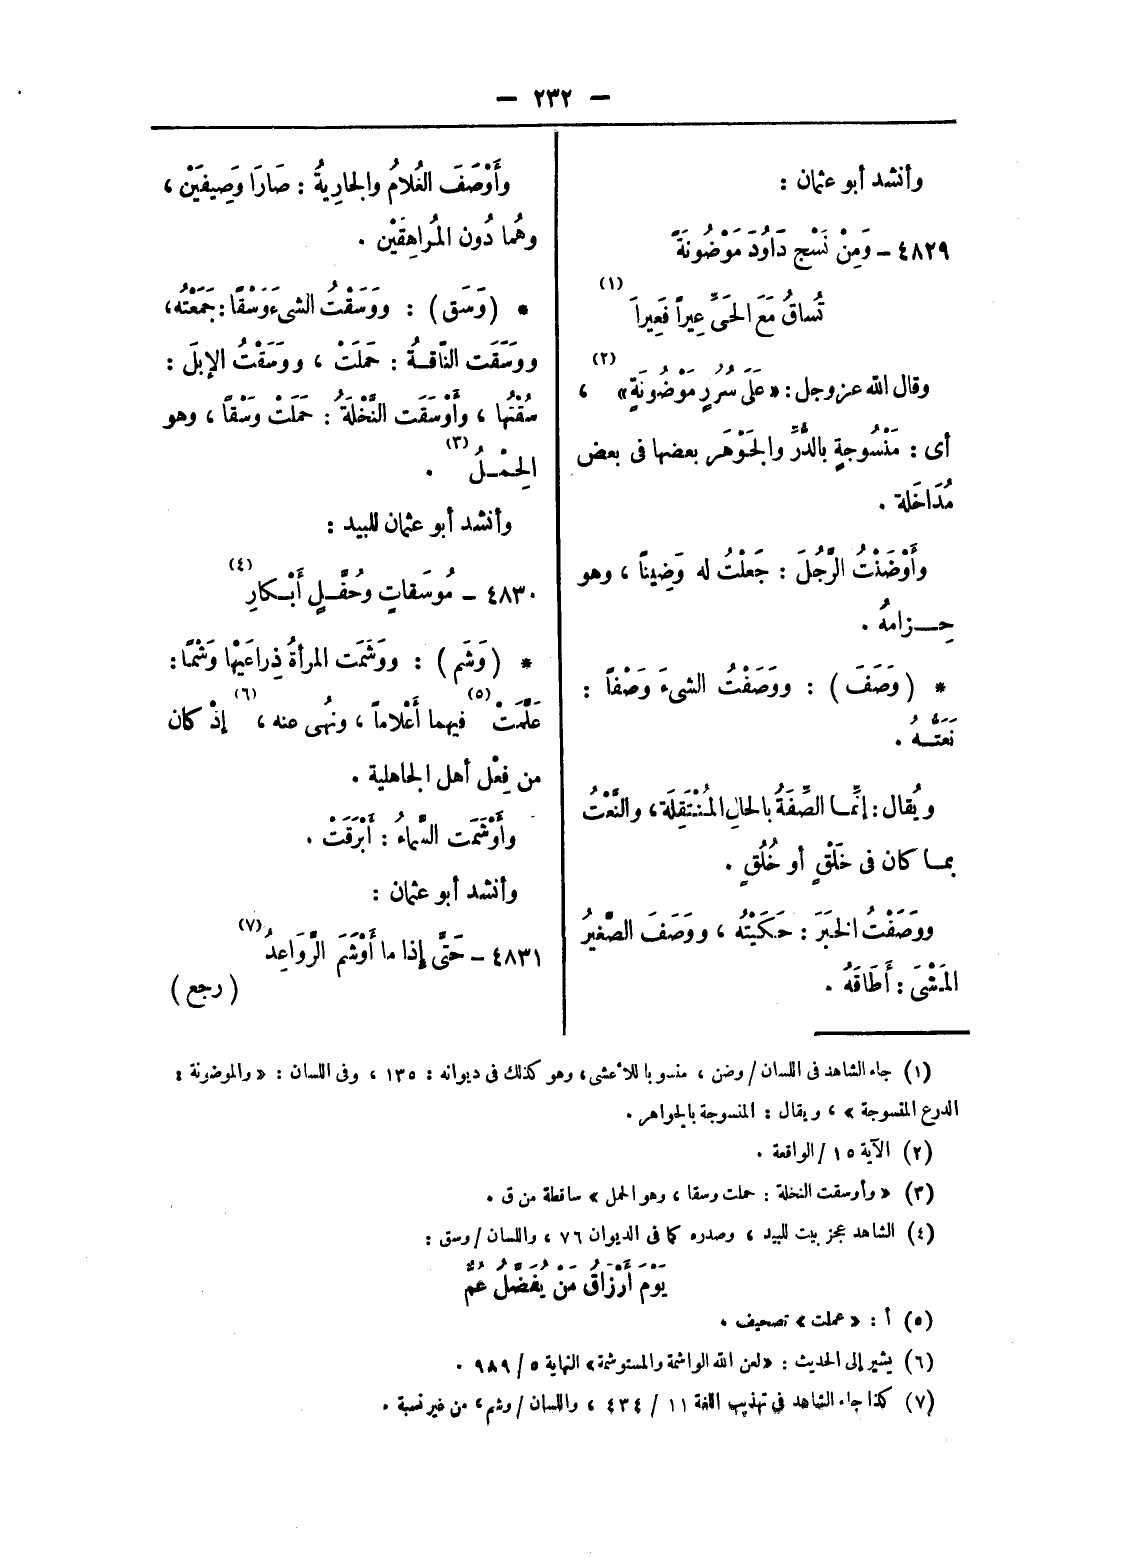 — ٢٣٢ —
وأنشد أبو عثمان :
٤٨٢٩ – وَمِنْ نَسْجِ دَاوُدَ مَوْضُونَةً
تُساقُ مَعَ الحَىِّ عِيراً فَعِيراَ (١)
وقال الله عز وجل : «عَلَى سُرُرٍ مَوْضُونَةٍ» (٢) ،
أى : مَنْسُوجةٍ بالدُّرِّ والجَوْهَرِ بعضها فى بعض
مُدَاخَلة .
وأَوْضَنْتُ الرَّجُلَ : جَعَلْتُ له وَضِيناً ، وهو
حِـزامهُ .
* ( وَصَفَ ) : ووَصَفْتُ الشىءَ وَصْفاً :
نَعَتَّـهُ .
ويُقال : إنَّمـا الصِّفَةُ بالحالِ المُنْتَقِلَة ، والنَّعْتُ
بمـا كان فى خَلْقٍ أو خُلُقٍ .
ووَصَفْتُ الخبَرَ : حَكَيْتُه ، ووَصَفَ الصَّغيرُ
المَشْىَ : أَطَاقَهُ .
وأَوْصَفَ الغُلامُ والجارِيةُ : صَارَا وَصِيفَيْن ،
وهُما دُون المُراهِقَيْن .
* ( وَسَق ) : ووَسَقْتُ الشىءَ وَسْقًا : جَمَعْتُه ،
ووَسَقَت النَّاقـةُ : حَمَلَتْ ، ووَسَقْتُ الإبلَ :
سُقْتُها ، وأَوْسَقَت النَّخْلَةُ : حَمَلَتْ وَسْقاً ، وهو
الحِمْـلُ (٣) .
وأنشد أبو عثمان للبيد :
٤٨٣٠ – مُوسَقاتٍ وحُفَّـلٍ أَبْـكارِ (٤)
* ( وَشَم ) : ووَشَمَت المرأةُ ذِراعَيْها وَشْمًا :
عَلَّمَتْ (٥) فيهما أَعْلاماً ، ونُهى عنه ، (٦) إذْ كان
من فِعْل أهل الجاهلية .
وأَوْشَمَت السَّماءُ : أَبْرَقَتْ .
وأنشد أبو عثمان :
٤٨٣١ – حَتَّى إذا ما أَوْشَمَ الرَّوَاعِدُ (٧)
( رجع )
(١) جاء الشاهد فى اللسان / وضن ، منسوبا للأعشى ، وهو كذلك فى ديوانه : ١٣٥ ، وفى اللسان : «والموضونة :
الدرع المنسوجة » ، ويقال : المنسوجة بالجواهر .
(٢) الآية ١٥ / الواقعة .
(٣) «وأوسقت النخلة : حملت وسقا ، وهو الحمل» ساقطة من ق .
(٤) الشاهد عجز بيت للبيد ، وصدره كما فى الديوان ٧٦ ، واللسان / وسق :
يَوْمَ أَرْزاقُ مَنْ يُفَضَّلُ عُمٌّ
(٥) أ : «عملت» تصحيف .
(٦) يشير إلى الحديث : «لعن الله الواشمة والمستوشمة» النهاية ٥ / ٩٨٩ .
(٧) كذا جاء الشاهد في تهذيب اللغة ١١ / ٤٣٤ ، واللسان / وشم ، من غير نسبة .